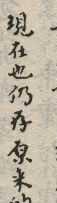 現在也仍存原来的